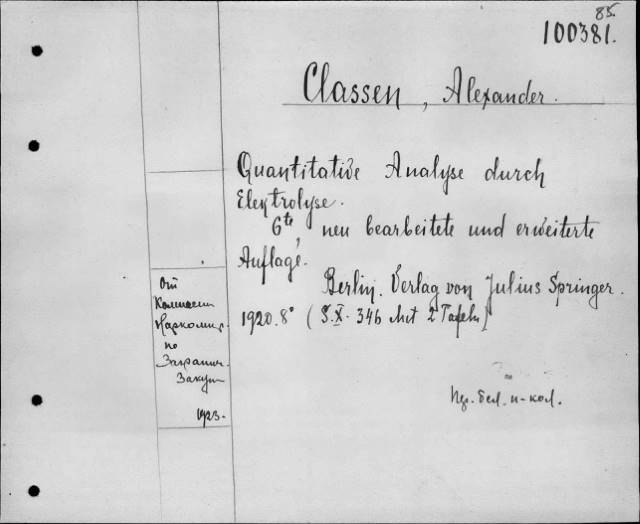 85.
100381.
Classen, Alexander.
Quantitative Analyse durch
Elektrolyse.
6te, neu bearbeitete und erweiterte
Auflage.
Berlin. Verlag von Julius Springer.
1920. 8° (S. X. 346 Mit 2 Tafeln)
От
Комиссии
Наркомпр.
по
Загранич.
Закуп
1923.